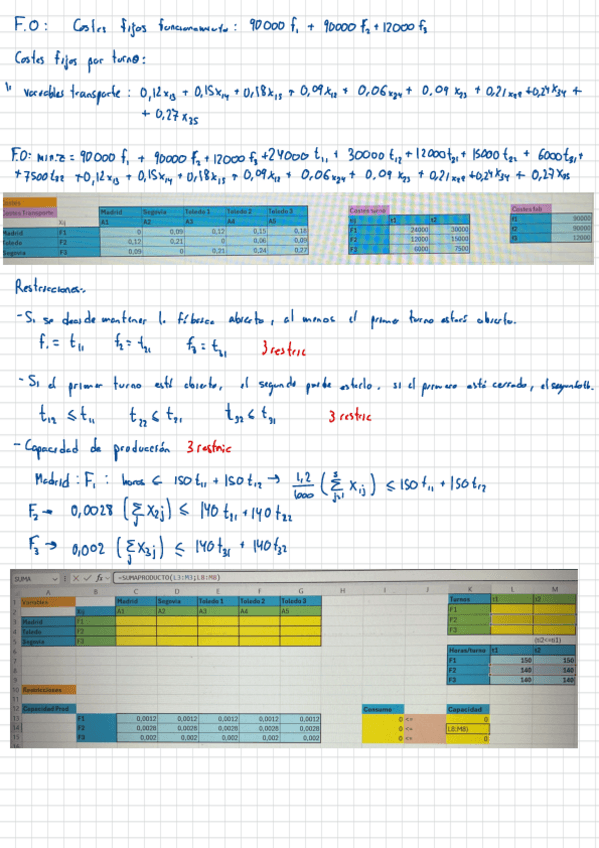 F.O: Costes fijos funcionamiento: 90000 f₁ + 90000 f₂ + 12000 f₃
Costes fijos por turno:
" variables transporte: 0,12x₁₃ + 0,15x₁₄ + 0,18x₁₅ + 0,09x₁₂ + 0,06x₂₄ + 0,09 x₂₅ + 0,21x₂₂ + 0,24x₃₄ +
+ 0,27x₃₅
F.O: MIN Z = 90000 f₁ + 90000 f₂ + 12000 f₃ + 24000 t₁₁ + 30000 t₁₂ + 12000 t₂₁ + 15000 t₂₂ + 6000 t₃₁ +
+ 7500 t₃₂ + 0,12x₁₃ + 0,15x₁₄ + 0,18x₁₅ + 0,09x₁₂ + 0,06x₂₄ + 0,09 x₂₅ + 0,21x₂₂ + 0,24x₃₄ + 0,27x₃₅
Costes
Costes Transporte Madrid Segovia Toledo 1 Toledo 2 Toledo 3 Costes turno Costes fab
Xij A1 A2 A3 A4 A5 t1 t2 f1 90000
Madrid F1 0 0,09 0,12 0,15 0,18 F1 24000 30000 f2 90000
Toledo F2 0,12 0,21 0 0,06 0,09 F2 12000 15000 f3 12000
Segovia F3 0,09 0 0,21 0,24 0,27 F3 6000 7500
Restricciones:
- Si se decide mantener la fábrica abierta, al menos el primer turno estará abierto.
f₁ = t₁₁ f₂ = t₂₁ f₃ = t₃₁ 3 restric
- Si el primer turno está abierto, el segundo puede estarlo. si el primero está cerrado, el segundo tb.
t₁₂ ≤ t₁₁ t₂₂ ≤ t₂₁ t₃₂ ≤ t₃₁ 3 restric
- Capacidad de producción 3 restric
Madrid: F₁: horas ≤ 150 t₁₁ + 150 t₁₂ → 1,2/1000 (∑ x₁ⱼ) ≤ 150 t₁₁ + 150 t₁₂
F₂ → 0,0028 (∑ x₂ⱼ) ≤ 140 t₂₁ + 140 t₂₂
F₃ → 0,002 (∑ x₃ⱼ) ≤ 140 t₃₁ + 140 t₃₂
SUMA =SUMAPRODUCTO(L3:M3;L8:M8)
A B C D E F G H I J K L M
1 Variables Madrid Segovia Toledo 1 Toledo 2 Toledo 3 Turnos t1 t2
2 Xij A1 A2 A3 A4 A5 F1
3 Madrid F1 F2
4 Toledo F2 F3
5 Segovia F3 (t2<=t1)
6 Horas/turno t1 t2
7 F1 150 150
8 F2 140 140
9 F3 140 140
10 Restricciones
11
12 Capacidad Prod Consumo Capacidad
13 F1 0,0012 0,0012 0,0012 0,0012 0,0012 0 <= 0
14 F2 0,0028 0,0028 0,0028 0,0028 0,0028 0 <= L8:M8)
15 F3 0,002 0,002 0,002 0,002 0,002 0 <= 0